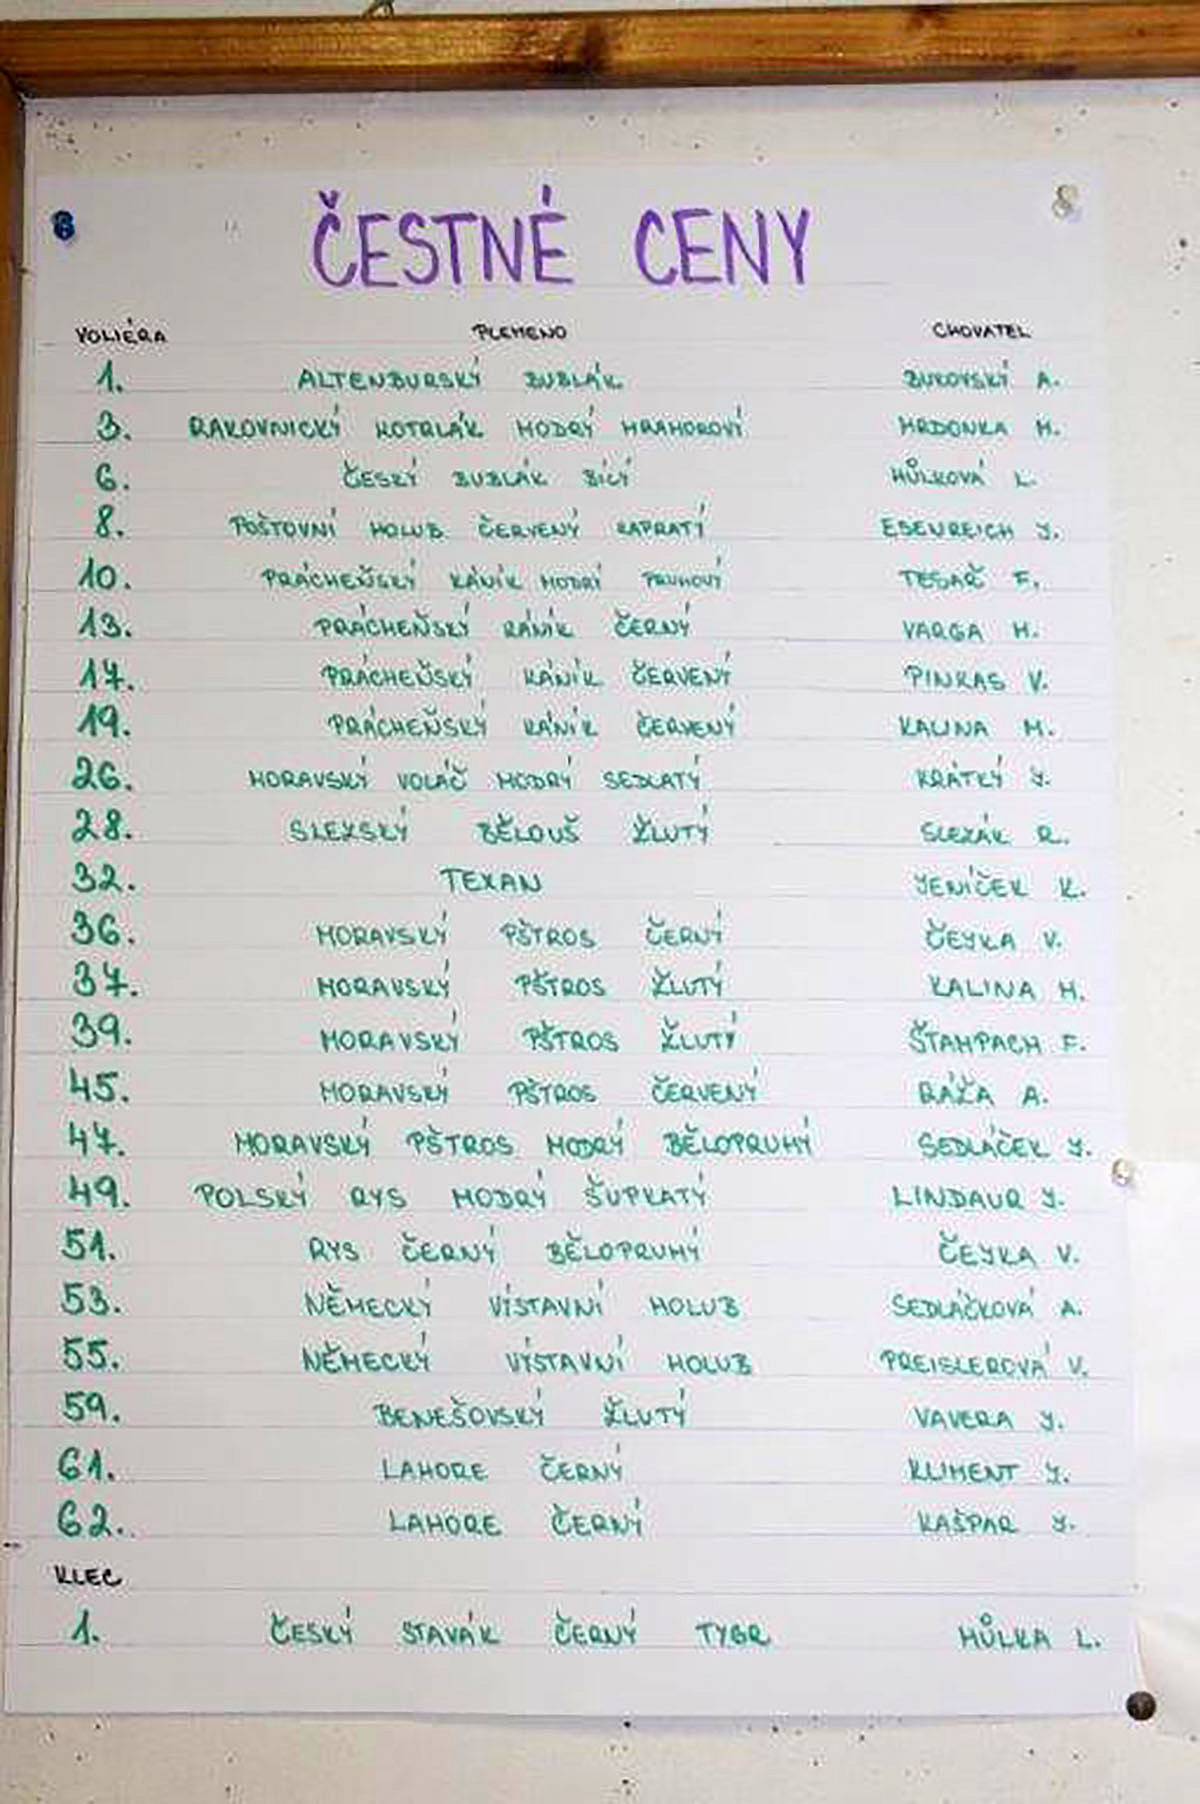 ČESTNÉ CENY
VOLIÉRA PLEMENO CHOVATEL
1. ALTENBURSKÝ BUBLÁK BUKOVSKÝ A.
3. RAKOVNICKÝ KOTRLÁK MODRÝ MRAMOROVÝ MRDONKA M.
6. ČESKÝ BUBLÁK BÍLÝ HŮLKOVÁ L.
8. POŠTOVNÍ HOLUB ČERVENÝ KAPRATÝ ESENREICH J.
10. PRÁCHEŇSKÝ KÁNÍK MODRÝ PRUHOVÝ TESAŘ F.
13. PRÁCHEŇSKÝ KÁNÍK ČERNÝ VARGA M.
17. PRÁCHEŇSKÝ KÁNÍK ČERVENÝ PINKAS V.
19. PRÁCHEŇSKÝ KÁNÍK ČERVENÝ KALINA M.
26. MORAVSKÝ VOLÁČ MODRÝ SEDLATÝ KRÁTKÝ J.
28. SLEZSKÝ BĚLOUŠ ŽLUTÝ SLEZÁK R.
32. TEXAN JENÍČEK K.
36. MORAVSKÝ PŠTROS ČERNÝ ČEJKA V.
37. MORAVSKÝ PŠTROS ŽLUTÝ KALINA M.
39. MORAVSKÝ PŠTROS ŽLUTÝ ŠTAMPACH F.
45. MORAVSKÝ PŠTROS ČERVENÝ RÁŽA A.
47. MORAVSKÝ PŠTROS MODRÝ BĚLOPRUHÝ SEDLÁČEK J.
49. POLSKÝ RYS MODRÝ ŠUPKATÝ LINDAUR J.
51. RYS ČERNÝ BĚLOPRUHÝ ČEJKA V.
53. NĚMECKÝ VÍSTAVNÍ HOLUB SEDLÁČKOVÁ A.
55. NĚMECKÝ VÍSTAVNÍ HOLUB PREISLEROVÁ V.
59. BENEŠOVSKÝ ŽLUTÝ VAVERA J.
61. LAHORE ČERNÝ KLIMENT J.
62. LAHORE ČERNÝ KAŠPAR J.
KLEC
1. ČESKÝ STAVÁK ČERNÝ TYGR HŮLKA L.